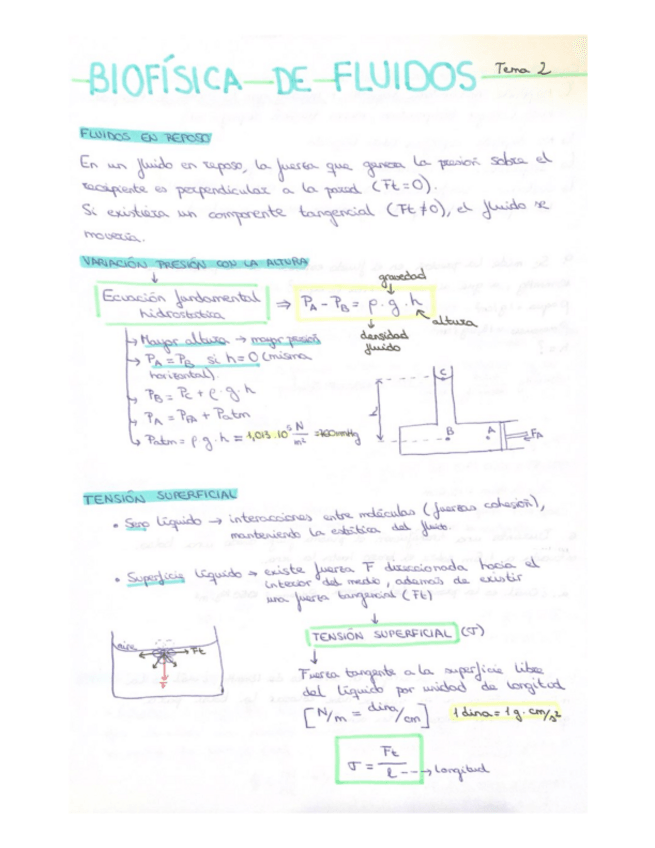 BIOFÍSICA DE FLUIDOS Tema 2
FLUIDOS EN REPOSO
En un fluido en reposo, la fuerza que genera la presión sobre el
recipiente es perpendicular a la pared (Ft=0).
Si existiera un componente tangencial (Ft≠0), el fluido se
movería.
VARIACIÓN PRESIÓN CON LA ALTURA
gravedad
Ecuación fundamental
hidrostática
⇒ PA - PB = ρ · g · h
altura
densidad
fluido
Mayor altura → mayor presión
PA = PB si h=0 (misma
horizontal).
PB = PC + ρ · g · h
PA = PFA + Patm
Patm = ρ · g · h = 1,013 · 10⁵ N/m² = 760mmHg
C
h
B
A
FA
TENSIÓN SUPERFICIAL
• Seno líquido → interacciones entre moléculas (fuerzas cohesión),
manteniendo la estática del fluido.
• Superficie líquido → existe fuerza F direccionada hacia el
interior del medio, además de existir
una fuerza tangencial (Ft)
aire
Ft
F
TENSIÓN SUPERFICIAL (σ)
Fuerza tangente a la superficie libre
del líquido por unidad de longitud
[N/m = dina/cm] 1 dina = 1 g · cm/s²
σ = Ft / l → longitud